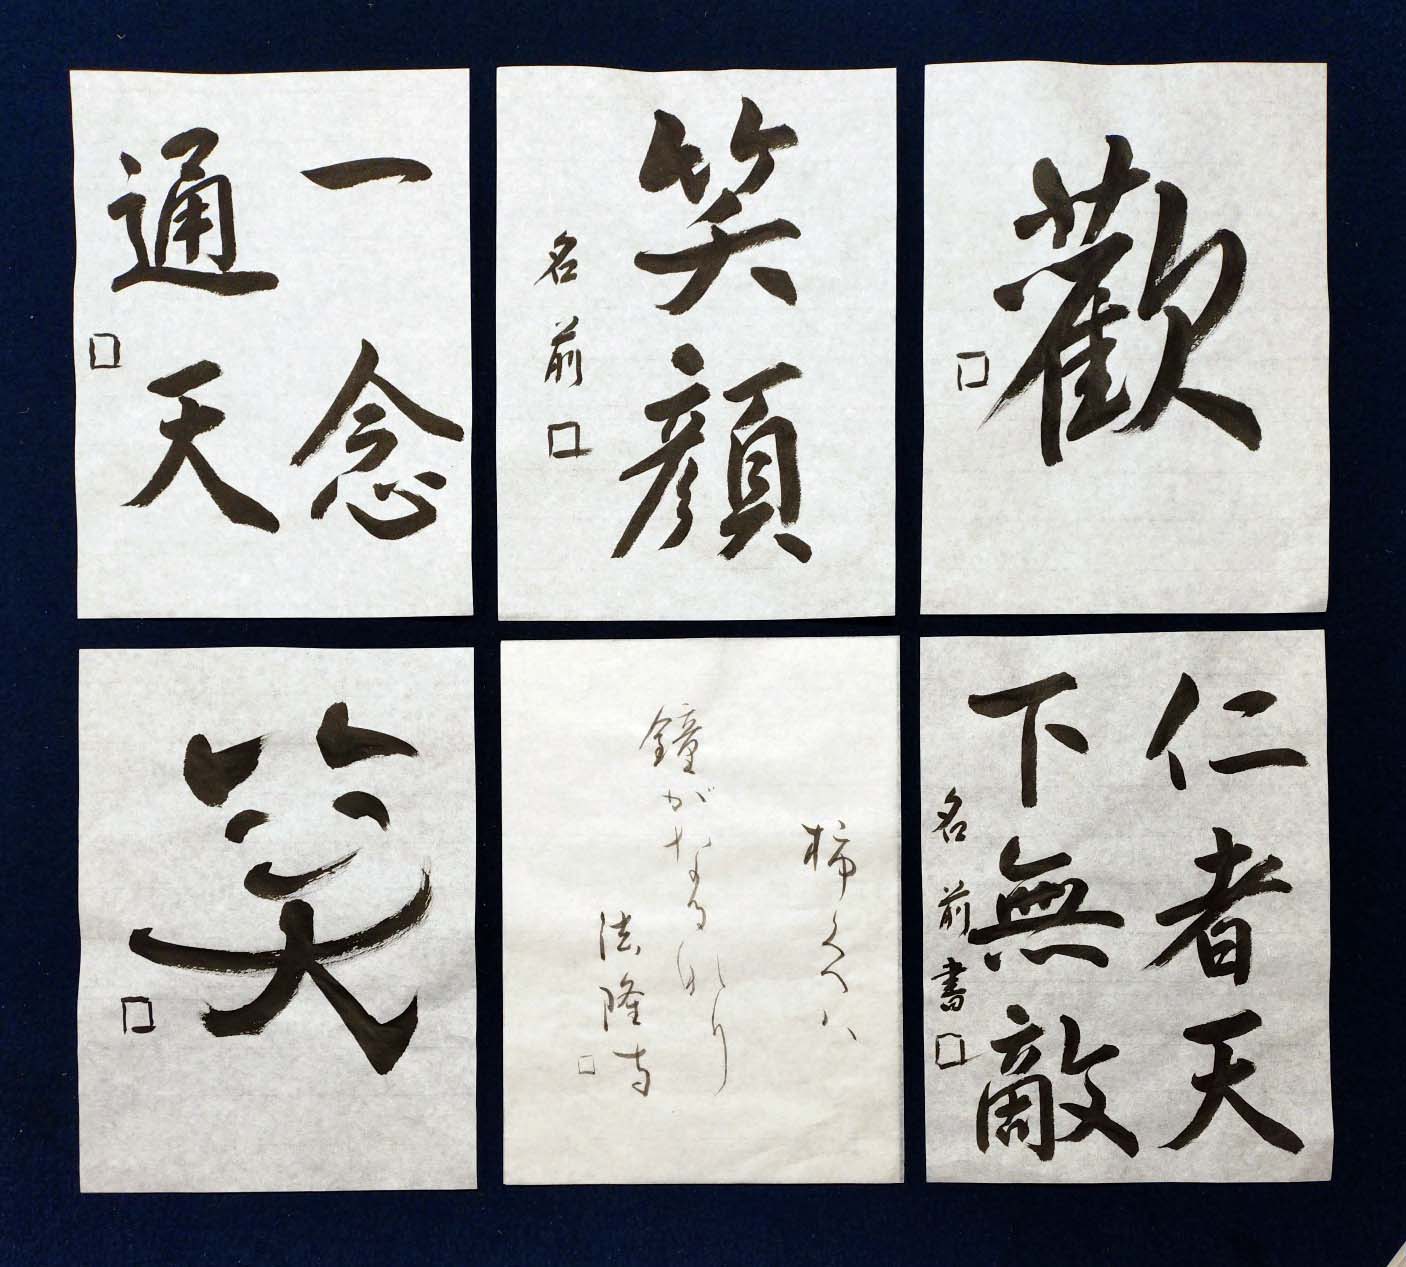 一念
通天
笑顔
名前
歡
笑
柿くへハ
鐘がなるなり
法隆寺
仁者天
下無敵
名前書